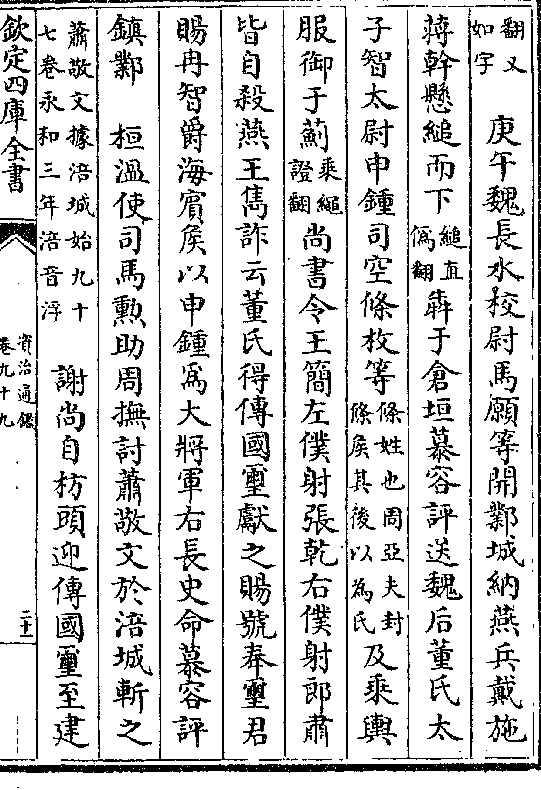 翻又
如字
庚午魏長水校尉馬願等開鄴城納燕兵戴施
蔣幹懸縋而下
縋直
偽翻
犇于倉垣慕容評送魏后董氏太
子智太尉申鍾司空條枚等
條姓也周亞夫封
條侯其後以為氏
及乘輿
服御于薊
乘繩
證翻
尚書令王簡左僕射張乾右僕射郎肅
皆自殺燕王雋詐云董氏得傳國璽獻之賜號奉璽君
賜冉智爵海賓侯以申鍾爲大將軍右長史命慕容評
鎮鄴 桓溫使司馬勲助周撫討蕭敬文於涪城斬之
蕭敬文據涪城始九十
七卷永和三年涪音浮
謝尚自枋頭迎傳國璽至建
欽定四庫全書
資治通鑑
卷九十九
二十一